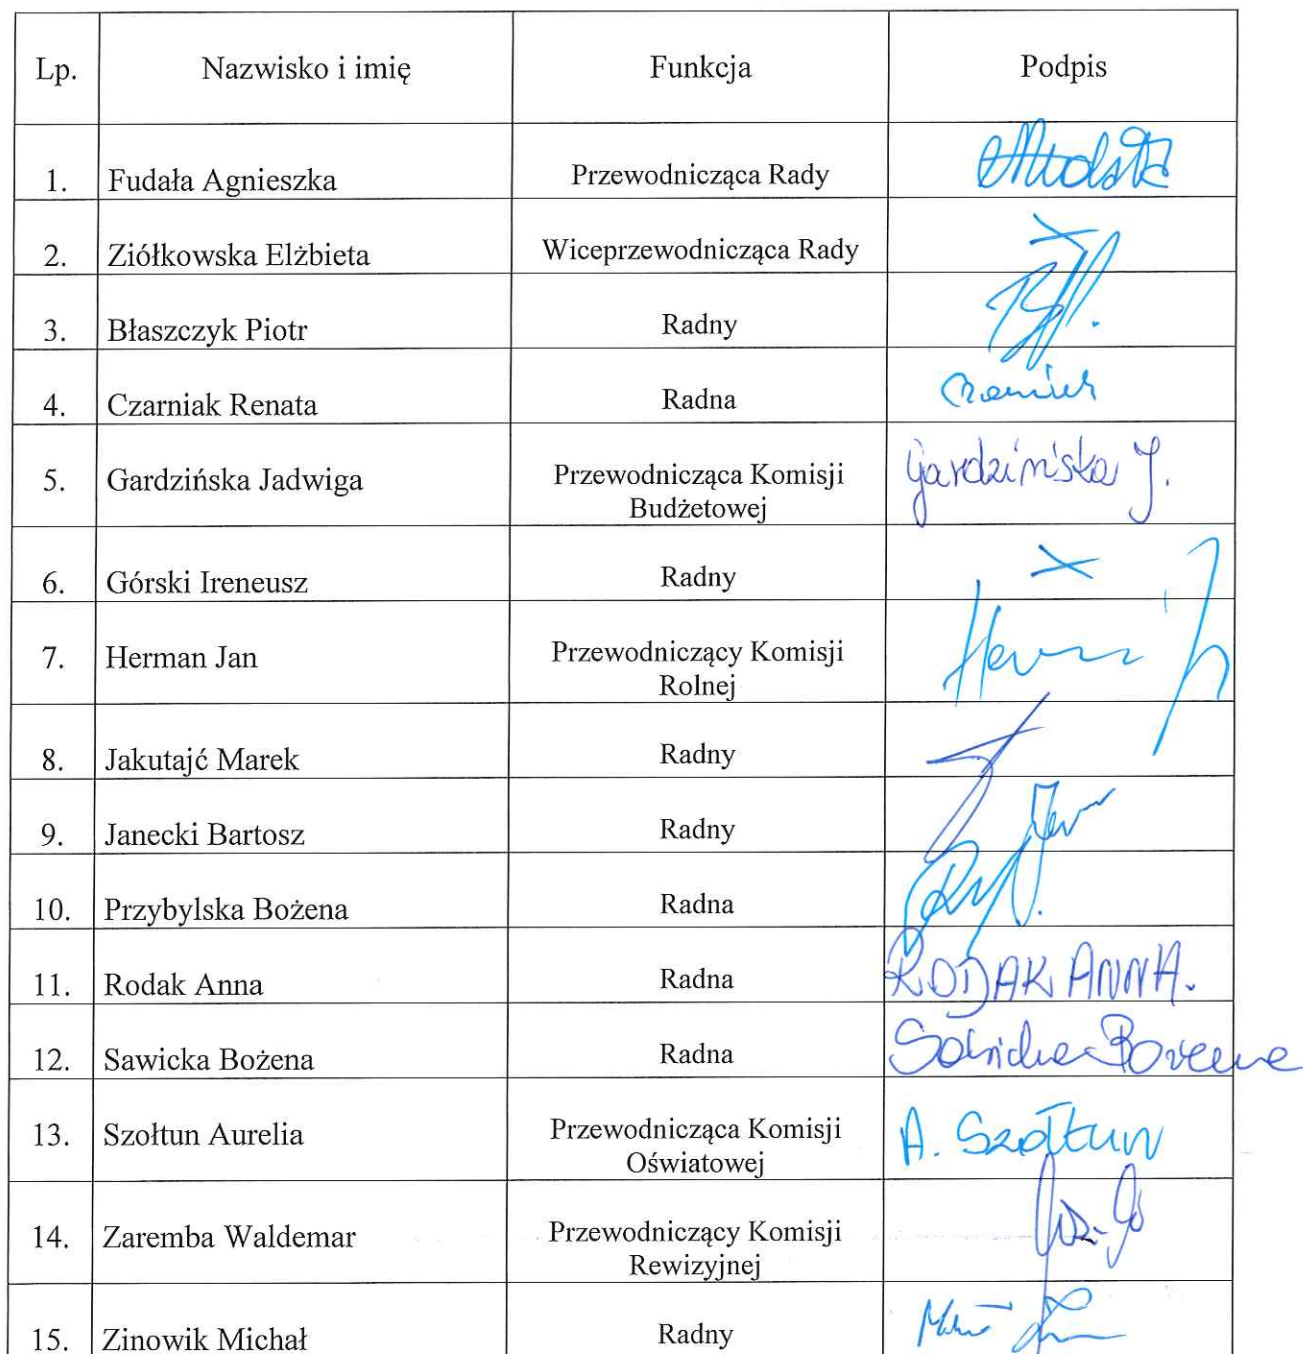 Lp. Nazwisko i imię Funkcja Podpis
1. Fudała Agnieszka Przewodnicząca Rady
2. Ziółkowska Elżbieta Wiceprzewodnicząca Rady
3. Błaszczyk Piotr Radny
4. Czarniak Renata Radna
5. Gardzińska Jadwiga Przewodnicząca Komisji Gardzińska J.
Budżetowej
6. Górski Ireneusz Radny
7. Herman Jan Przewodniczący Komisji
Rolnej
8. Jakutajć Marek Radny
9. Janecki Bartosz Radny
10. Przybylska Bożena Radna
11. Rodak Anna Radna RODAK ANNA.
12. Sawicka Bożena Radna Sawicka Bożena
13. Szołtun Aurelia Przewodnicząca Komisji A. Szołtun
Oświatowej
14. Zaremba Waldemar Przewodniczący Komisji
Rewizyjnej
15. Zinowik Michał Radny